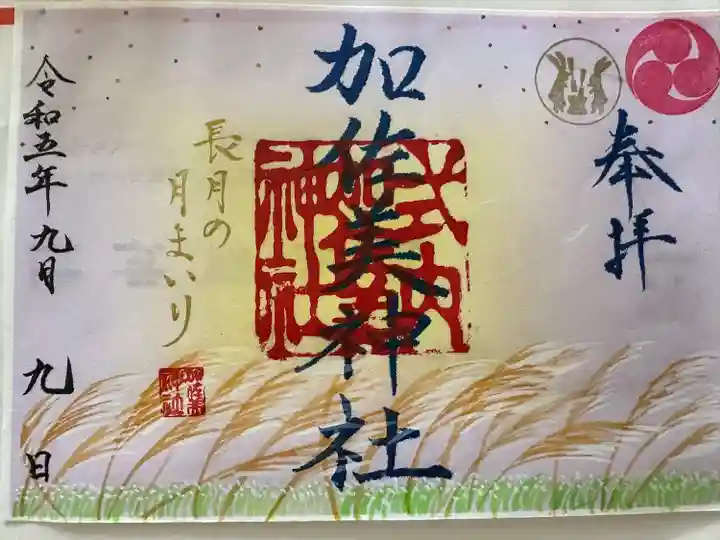 奉拝
加佐美神社
式内
神社
長月の
月まいり
令和五年九月九日